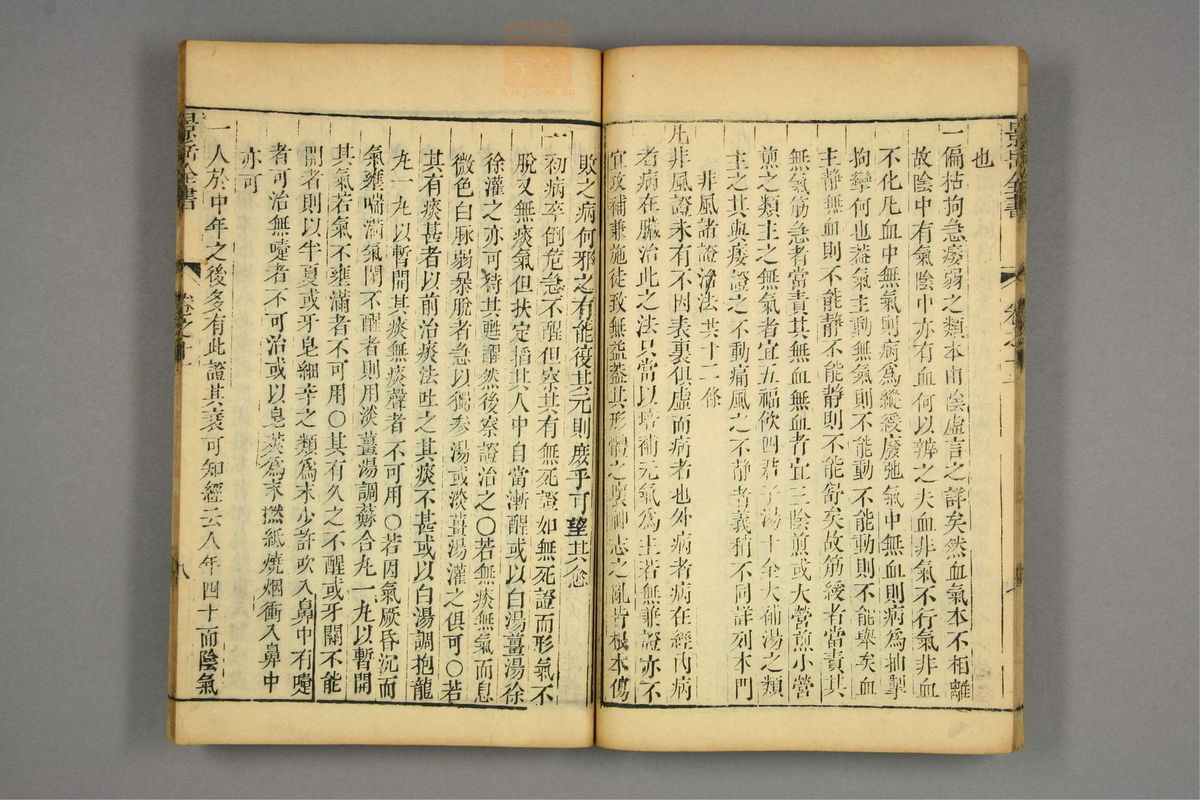 景岳全書
卷之十一
也
一偏枯拘急痿弱之類本由陰虛言之詳矣然血氣本不相離
故陰中有氣陰中亦有血何以辨之夫血非氣不行氣非血
不化凡血中無氣則病為縱緩廢弛氣中無血則病為抽掣
拘攣何也葢氣主動無氣則不能動不能動則不能舉矣血
主靜無血則不能靜不能靜則不能舒矣故筋緩者當責其
無氣筋急者當責其無血無血者宜三陰煎或大營煎小營
煎之類主之無氣者宜五福飲四君子湯十全大補湯之類
主之其與痿證之不動痛風之不靜者義稍不同詳列本門
非風諸證治法共十二條
凡非風證未有不因表裏俱虛而病者也外病者病在經內病
者病在臟治此之法只當以培補元氣為主若無兼證亦不
宜攻補兼施徒致無益葢其形體之壞神志之亂皆根本傷
敗之病何邪之有能復其元則庶乎可望其愈
一初病卒倒危急不醒但察其有無死證如無死證而形氣不
脫又無痰氣但扶定掐其人中自當漸醒或以白湯薑湯徐
徐灌之亦可待其甦醒然後察證治之○若無痰無氣而息
微色白脉弱暴脫者急以獨參湯或淡薑湯灌之俱可○若
其有痰甚者以前治痰法吐之其痰不甚或以白湯調抱龍
丸一丸以暫開其痰無痰聲者不可用○若因氣厥昏沉而
氣壅喘滿氣閉不醒者則用淡薑湯調蘇合丸一丸以暫開
其氣若氣不壅滿者不可用○其有久之不醒或牙關不能
開者則以半夏或牙皂細辛之類為末少許吹入鼻中有嚏
者可治無嚏者不可治或以皂莢為末撚紙燒烟衝入鼻中
亦可
一人於中年之後多有此證其衰可知經云人年四十而陰氣
景岳全書
卷之十一
八